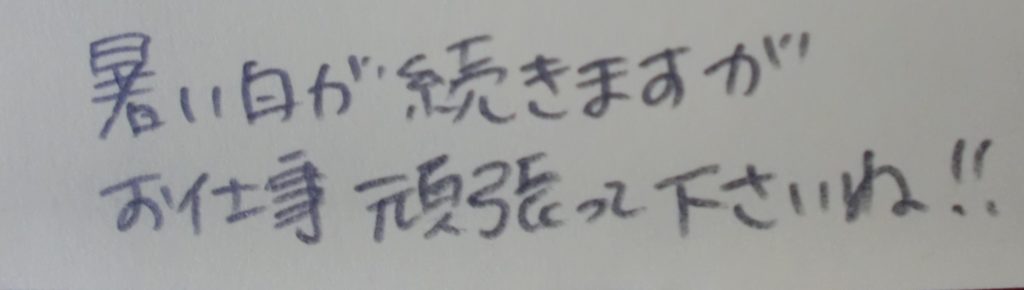 暑い日が続きますが
お仕事頑張って下さいね!!